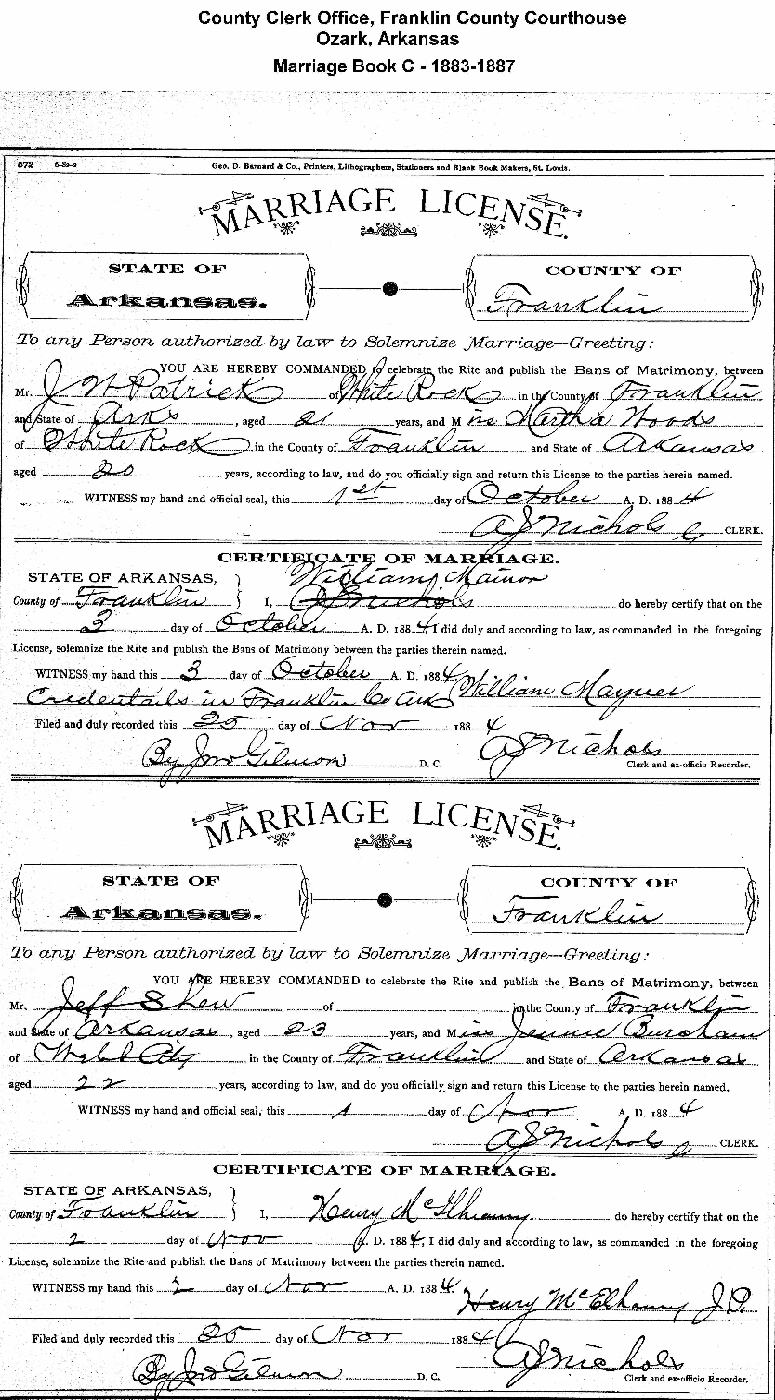 County Clerk Office, Franklin County Courthouse
Ozark, Arkansas
Marriage Book C - 1883-1887
672 6-82-2 Geo. D. Barnard & Co., Printers, Lithographers, Stationers and Blank Book Makers, St. Louis.
MARRIAGE LICENSE.
STATE OF COUNTY OF
Arkansas. Franklin
To any Person authorized by law to Solemnize Marriage—Greeting:
YOU ARE HEREBY COMMANDED to celebrate the Rite and publish the Bans of Matrimony, between
Mr. J W Patrick of White Rock in the County of Franklin
and State of Ark, aged 21 years, and Miss Martha Woods
of White Rock in the County of Franklin and State of Arkansas
aged 20 years, according to law, and do you officially sign and return this License to the parties herein named.
WITNESS my hand and official seal, this 1st day of October A. D. 1884
A J Nichols CLERK.
CERTIFICATE OF MARRIAGE.
STATE OF ARKANSAS, William Mainor
County of Franklin I, A J Nichols do hereby certify that on the
3 day of October A. D. 1884, I did duly and according to law, as commanded in the foregoing
License, solemnize the Rite and publish the Bans of Matrimony between the parties therein named.
WITNESS my hand this 3 day of October A. D. 1884
Credentails in Franklin Co Ark William Mayner
Filed and duly recorded this 25 day of Nov 1884
By Jno Gilmon D. C. A J Nichols
Clerk and ex-officio Recorder.
MARRIAGE LICENSE.
STATE OF COUNTY OF
Arkansas. Franklin
To any Person authorized by law to Solemnize Marriage—Greeting:
YOU ARE HEREBY COMMANDED to celebrate the Rite and publish the Bans of Matrimony, between
Mr. Jeff Shew of in the County of Franklin
and State of Arkansas, aged 23 years, and Miss Jennie Burcham
of in the County of Franklin and State of Arkansas
aged 22 years, according to law, and do you officially sign and return this License to the parties herein named.
WITNESS my hand and official seal, this 1 day of Nov A. D. 1884
A J Nichols CLERK.
CERTIFICATE OF MARRIAGE.
STATE OF ARKANSAS,
County of Franklin I, Henry McElhanny do hereby certify that on the
2 day of Nov A. D. 1884, I did duly and according to law, as commanded in the foregoing
License, solemnize the Rite and publish the Bans of Matrimony between the parties therein named.
WITNESS my hand this 2 day of Nov A. D. 1884.
Henry McElhanny J.P.
Filed and duly recorded this 25 day of Nov 1884
By Jno Gilmon D. C. A J Nichols
Clerk and ex-officio Recorder.